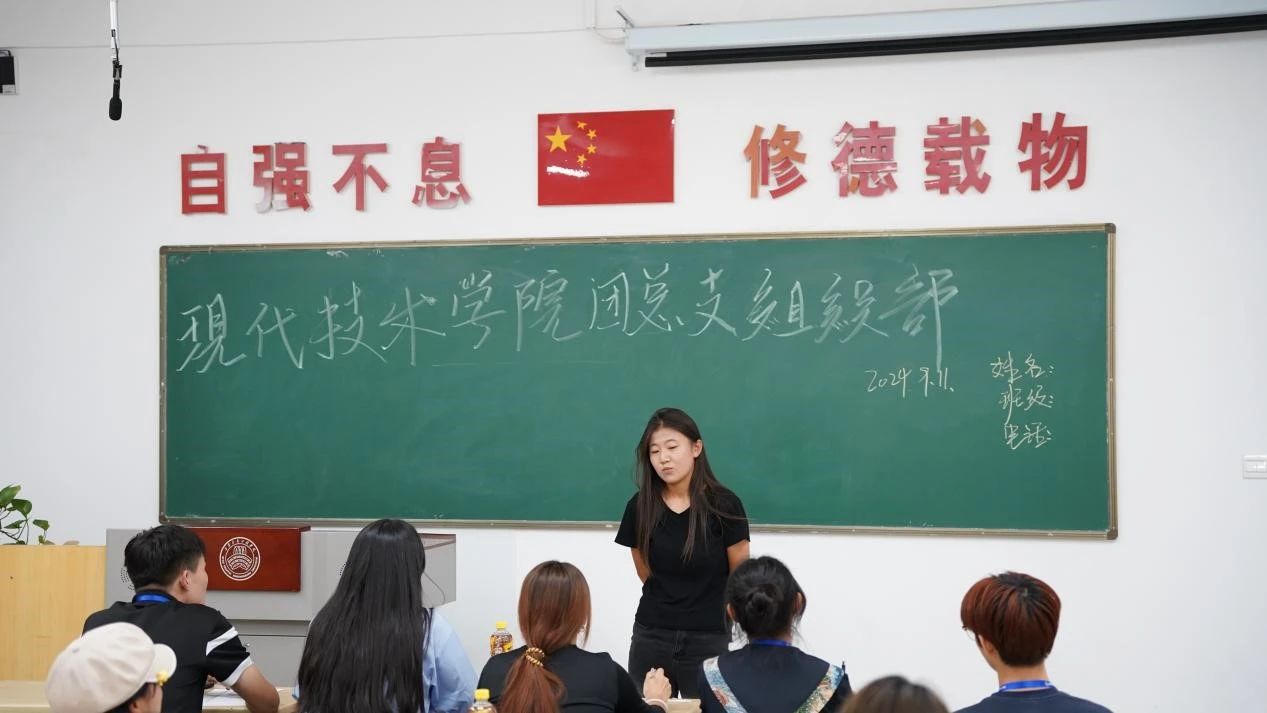 自强不息 修德载物
现代技术学院团总支组织部
2024.9.11.
姓名:
班级:
电话: